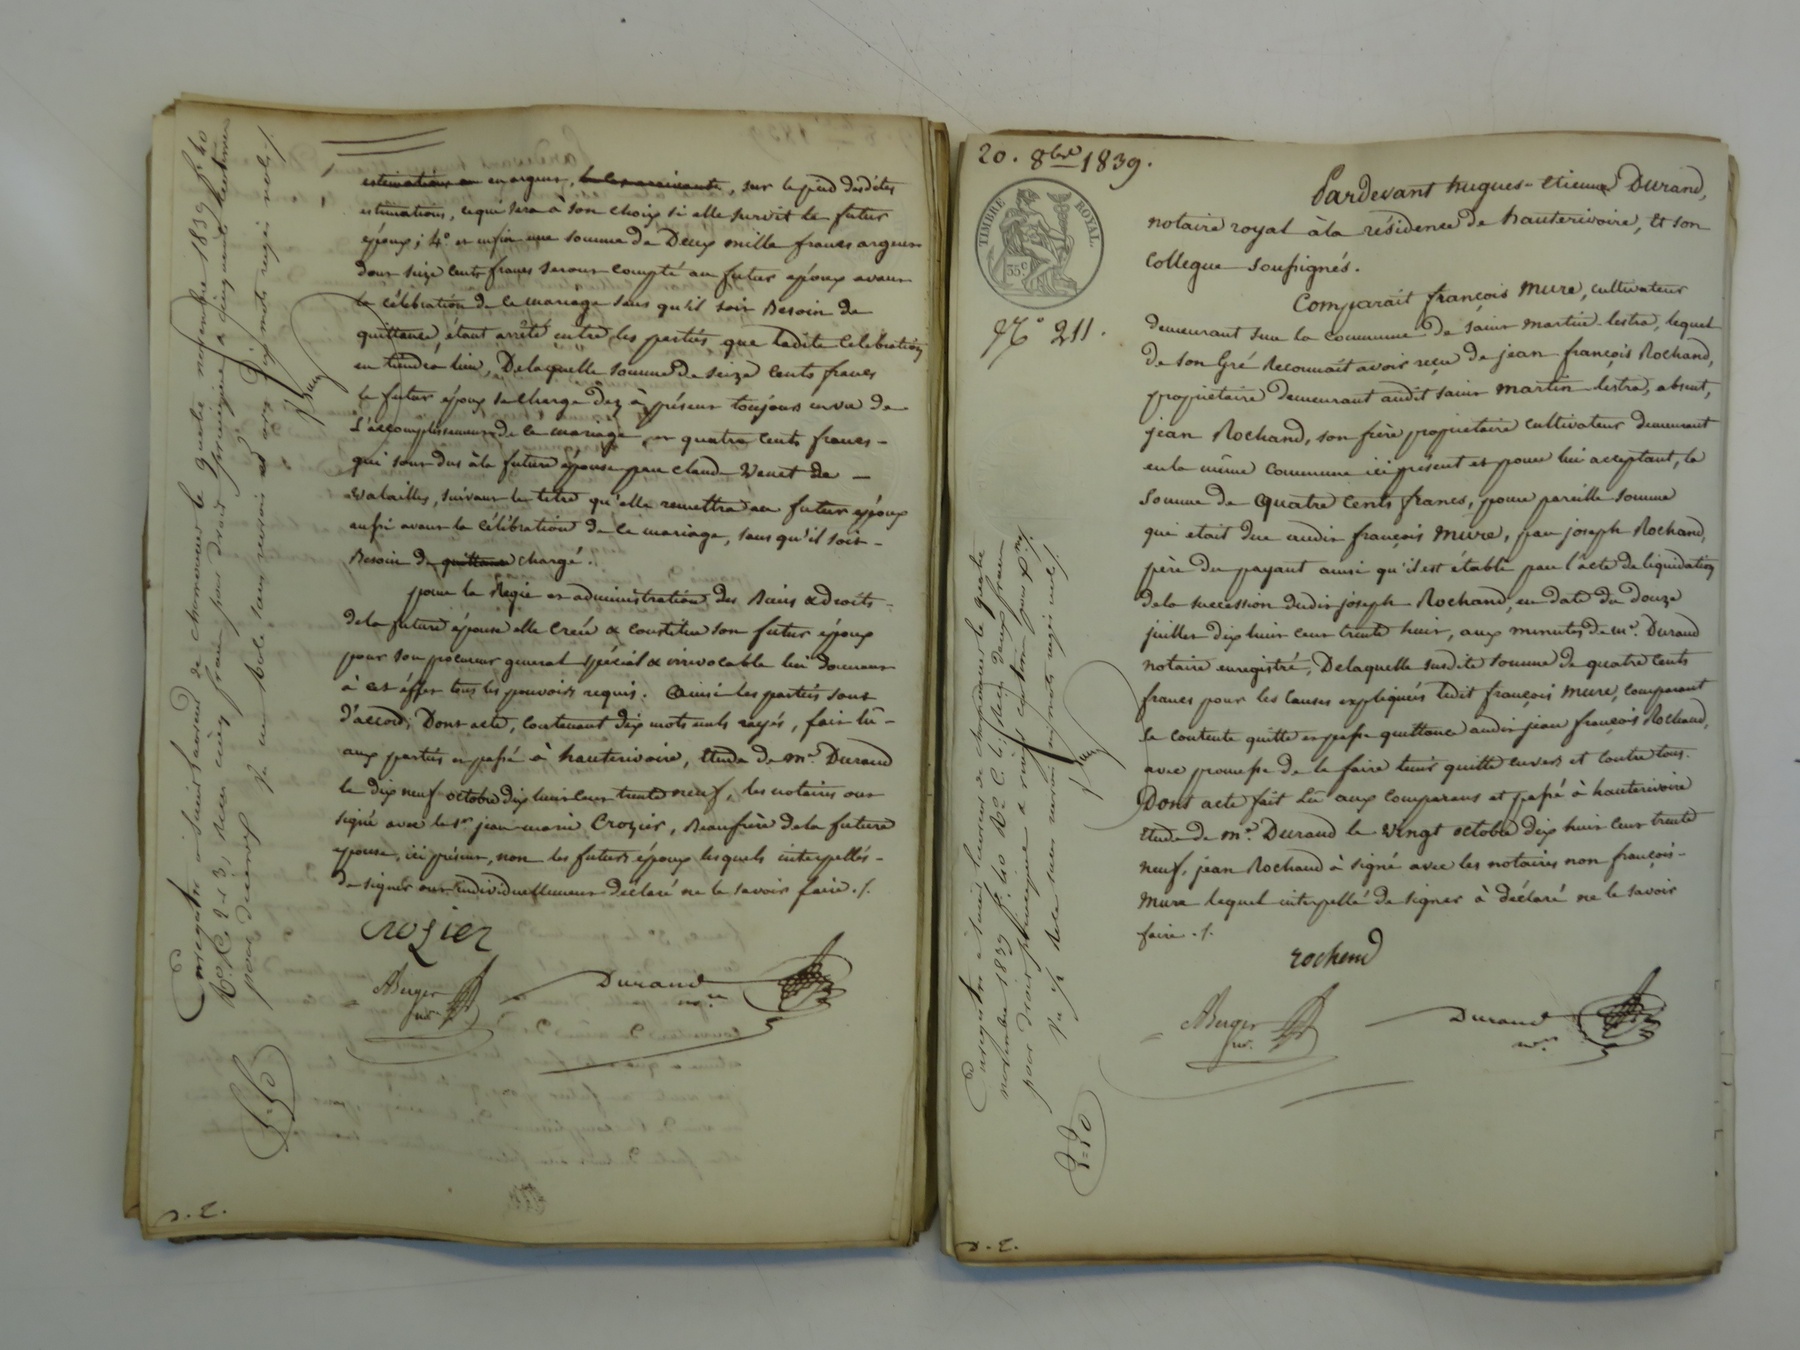 estimations ou en argent, sur le pied desdites
estimations, ce qui sera à son choix si elle survit le futur
époux; 4° et enfin une somme de Deux mille francs argent
dont seize cents francs seront compté au futur époux avant
la célébration de ce mariage sans qu'il soit Besoin de
quittance, étant arrêté entre les parties que ladite Célébration
en tiendra lieu, Delaquelle somme de seize cents francs
le futur époux se charge dez à présent toujours en vue de
l'accomplissement de ce mariage, et quatre cents francs -
qui sont dus à la future épouse par claude Venet de -
valailles, suivant le titre qu'elle remettra au futur époux
aussi avant la célébration de ce mariage, sans qu'il soit -
Besoin de quittance chargé.
pour la Régie et administration des Biens & Droits -
de la future épouse elle Crée & Constitue son futur époux
pour son procureur general spécial & irrévocable lui donnant
à cet effet tous les pouvoirs requis. Ainsi les parties sont
d'accord; Dont acte, contenant dix mots nuls rayés, fait lu -
aux parties et passé à hauterivoire, Etude de me. Durand
le dix neuf octobre dix huit cent trente neuf, les notaires ont
signé avec le sr jean-marie Crozier, Beaufrère de la future
épouse, ici présent, non les futurs époux lesquels interpellés -
de signer ont individuellement déclaré ne le savoir faire ./.
crozier
ABerger
nre
Durand
nre
Enregistré à Saint Laurent de chamousset le quatre novembre 1839 fo 40
Ro C. 2 et 3, reçu cinq francs pour droit
pour decimes
n. 2.
20. 8bre 1839.
TIMBRE ROYAL.
35c
No 211.
Pardevant hugues-etienne Durand,
notaire royal à la résidence de hauterivoire, Et son
Collegue soussignés.
Comparait françois Mure, cultivateur
demeurant sur la Commune de saint martin lestra, lequel
de son Gré Reconnait avoir reçu de jean françois Rochand,
propriétaire demeurant audit saint martin lestra, absent,
jean Rochand, son frère propriétaire cultivateur demeurant
en la même Commune ici présent et pour lui acceptant, la
somme de quatre Cents francs, pour pareille somme
qui était due audit françois Mure, par joseph Rochand,
père du payant ainsi qu'il est établi par l'acte de liquidation
de la succession dudit joseph Rochand, en date du douze
juillet dix huit cent trente huit, aux minutes de me. Durand
notaire enregistré, Delaquelle susdite somme de quatre Cents
francs pour les Causes expliquées ledit françois Mure, Comparant
se contente quitte et passe quittance audit jean françois Rochand,
avec promesse de le faire tenir quitte envers et contre tous.
Dont acte fait Lu aux comparans et passé à hauterivoire
Etude de me. Durand le Vingt octobre dix huit cent trente
neuf, jean Rochand à signé avec les notaires non françois -
Mure lequel interpellé de signer à déclaré ne le savoir
faire ./.
rochand
ABerger
nre.
Durand
nre
Enregistré à Saint Laurent de chamousset le quatre
novembre 1839 fo 40 Ro C.
pour droit
n. 2.